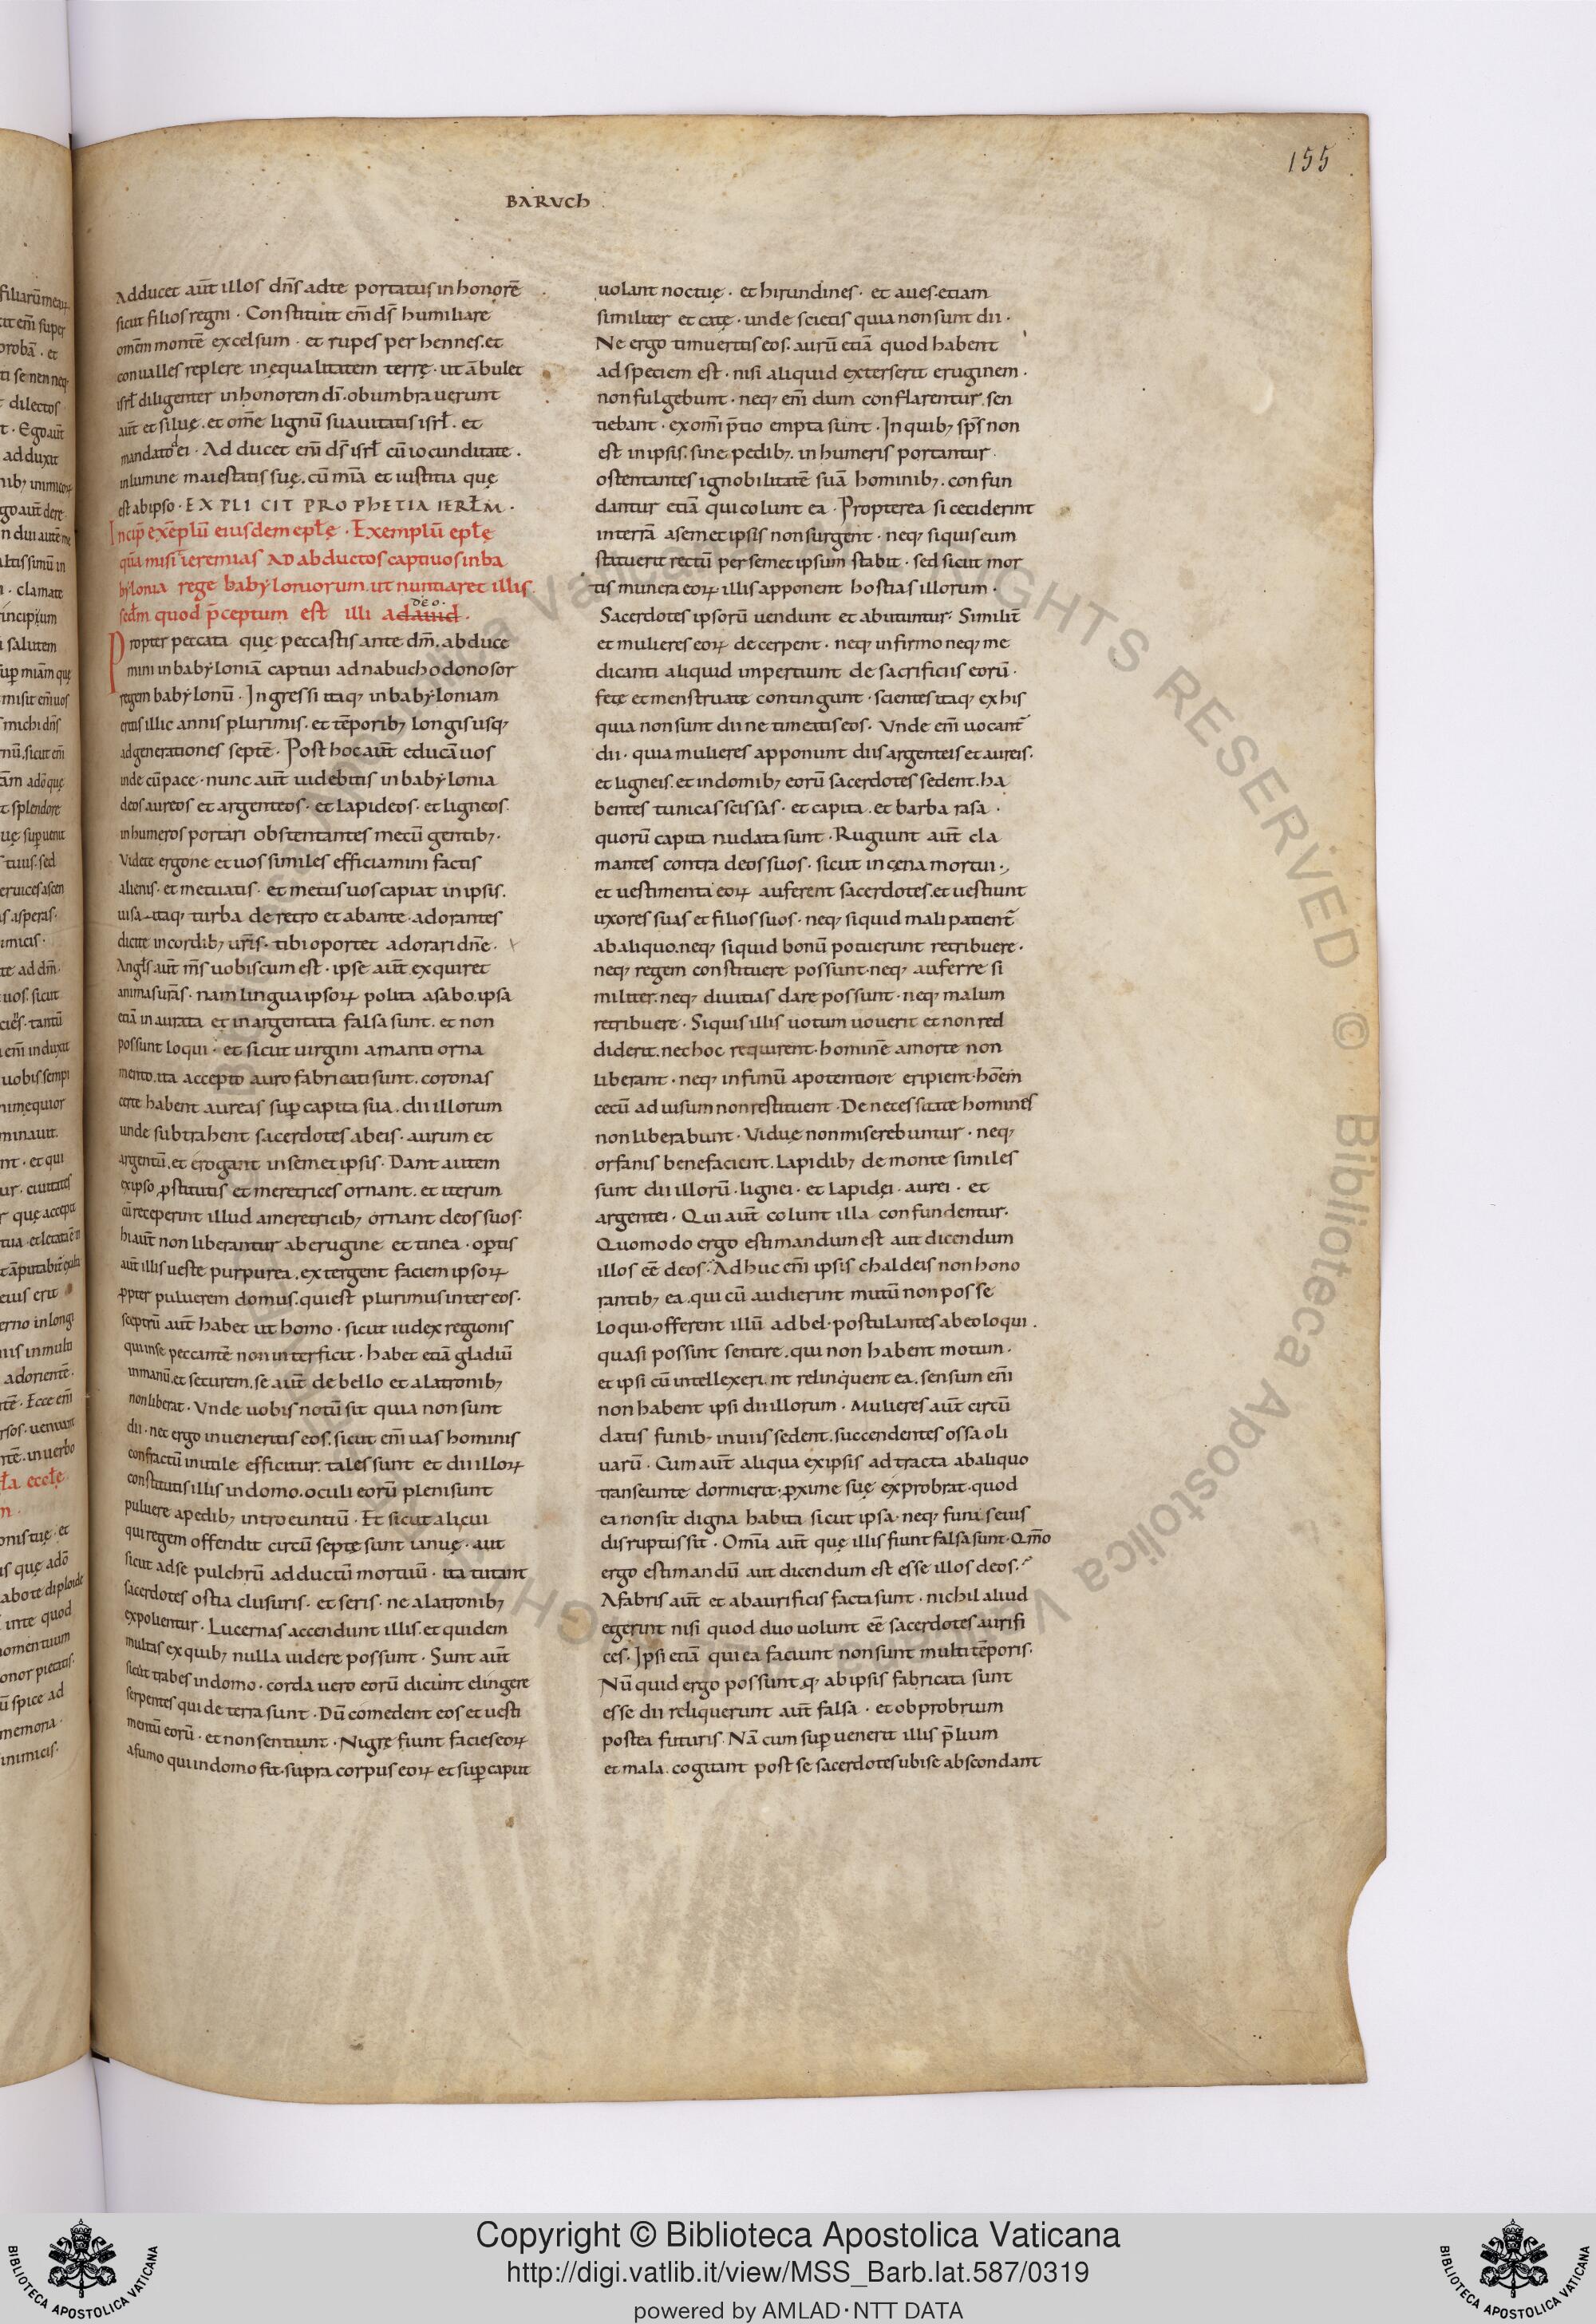 155
BARUCh
Adducet aut̄ illos dn̄s ad te portatus in honorē
sicut filios regni · Constituit em̄ ds̄ humiliare
omēm montē excelsum · et rupes perhennes. et
conualles replere inequalitatem terrę · ut ābulet
isrł diligenter in honorem dī · obumbrauerunt
aut̄ et siluę . et om̄e lignū suauitatis isrł . et
mandato dei · Adducet em̄ ds̄ isrł cū iocunditate .
in lumine maiestatis suę . cū mīa et iustitia quę
est ab ipso · EXPLICIT PROPhETIA IERŁM ·
Incip̄ exēplū eiusdem epłe · Exemplū epłe
quā misit ieremias AD abductos captiuos in ba
bylonia rege babyloniorum . ut nuntiaret illis
sedm̄ quod p̄ceptum est illi a dauid . deo.
Propter peccata quę peccastis ante dm̄ . abduce
mini in babyloniā captiui ad nabuchodonosor
regem babylonū · Ingressi itaq; in babyloniam
eritis illic annis plurimis . et tēporib; longis usq;
ad generationes septē · Post hoc aut̄ educā uos
inde cū pace · nunc aut̄ uidebitis in babylonia
deos aureos et argenteos · et lapideos · et ligneos.
in humeros portari obstentantes metū gentib; ·
Videte ergo ne et uos similes efficiamini factis
alienis · et metuatis · et metus uos capiat in ipsis .
uisa itaq; turba de retro et abante · adorantes
dicite in cordib; urīs · tibi oportet adorari dn̄e ·
Angłs aut̄ m̄s uobiscum est · ipse aut̄ exquiret
animas urās · nam lingua ipsoꝝ polita a fabo . ipsa
etiā inaurata et inargentata falsa sunt . et non
possunt loqui · et sicut uirgini amanti orna
mento . ita accepto auro fabricati sunt . coronas
certe habent aureas sup̄ capita sua . dii illorum
unde subtrahent sacerdotes ab eis · aurum et
argentū . et erogant in semetipsis · Dant autem
ex ipso ꝓstitutis et meretrices ornant . et iterum
cū receperint illud a meretricib; ornant deos suos ·
hi aut̄ non liberantur ab erugine et tinea · op̄tis
aut̄ illis ueste purpurea . extergent faciem ipsoꝝ
ꝓpter puluerem domus . qui est plurimus inter eos ·
sceptrū aut̄ habet ut homo · sicut iudex regionis
qui in se peccantē non interficit · habet etiā gladiū
in manū . et securem . se aut̄ de bello et a latronib;
non liberat · Vnde uobis notū sit quia non sunt
dii · nec ergo inueneritis eos . sicut em̄ uas hominis
confractū inutile efficitur . tales sunt et dii illoꝝ
constitutis illis in domo . oculi eorū pleni sunt
puluere a pedib; introeuntiū · Et sicut alicui
qui regem offendit circū septe sunt ianuę · aut
sicut ad se pulchrū adductū mortuū · ita tutant
sacerdotes ostia clusuris · et seris · ne a latronib;
expolientur · Lucernas accendunt illis . et quidem
multas ex quib; nulla uidere possunt · Sunt aut̄
sicut trabes in domo · corda uero eorū dicunt elingere
serpentes qui de terra sunt · Dū comedent eos et uesti
mentū eorū · et non sentiunt · Nigrę fiunt facies eoꝝ
a fumo qui in domo fit · supra corpus eoꝝ et sup̄ caput
uolant noctuę · et hirundines · et aues · etiam
similiter et catę · unde scietis quia non sunt dii ·
Ne ergo timueritis eos . aurū etiā quod habent
ad speciem est · nisi aliquid exterserit eruginem ·
non fulgebunt · neq; em̄ dum conflarentur . sen
tiebant · ex om̄i p̄tio empta sunt · In quib; sp̄s non
est in ipsis . sine pedib; . in humeris portantur ·
ostentantes ignobilitatē suā hominib; . confun
dantur etiā qui colunt ea · Propterea si ceciderint
in terrā a semetipsis non surgent · neq; si quis eum
statuerit rectū per semetipsum stabit · sed sicut mor
tis munera eoꝝ illis apponent hostias illorum ·
Sacerdotes ipsorū uendunt et abutuntur · Similit̄
et mulieres eoꝝ decerpent · neq; infirmo neq; me
dicanti aliquid impertiunt de sacrificiis eorū ·
fete et menstruate contingunt · scientes itaq; ex his
quia non sunt dii ne timeatis eos · Vnde em̄ uocant̄
dii · quia mulieres apponunt diis argenteis et aureis ·
et ligneis . et in domib; eorū sacerdotes sedent . ha
bentes tunicas scissas · et capita . et barba rasa ·
quorū capita nudata sunt · Rugiunt aut̄ cla
mantes contra deos suos · sicut in cena mortui ·
et uestimenta eoꝝ auferent sacerdotes . et uestiunt
uxores suas et filios suos · neq; si quid mali patient̄
ab aliquo . neq; si quid bonū potuerunt retribuere ·
neq; regem constituere possunt · neq; auferre si
militer . neq; diuitias dare possunt · neq; malum
retribuere · Si quis illis uotum uouerit et non red
diderit . nec hoc requirent · hominē a morte non
liberant · neq; infimū a potentiore eripient · hoēm
cecū ad uisum non restituent · De necessitate homines
non liberabunt · Viduę non miserebuntur · neq;
orfanis benefacient . Lapidib; de monte similes
sunt dii illorū · lignei · et lapidei · aurei · et
argentei · Qui aut̄ colunt illa confundentur ·
Quomodo ergo estimandum est aut dicendum
illos eē deos · Adhuc em̄ ipsis chaldeis non hono
rantib; ea . qui cū audierint mutū non posse
loqui · offerent illū ad bel · postulantes ab eo loqui .
quasi possint sentire . qui non habent motum ·
et ipsi cū intellexerint relinquent ea . sensum em̄
non habent ipsi dii illorum · Mulieres aut̄ circū
datis funib; in uiis sedent . succendentes ossa oli
uarū · Cum aut̄ aliqua ex ipsis adtracta ab aliquo
transeunte dormierit · ꝓxime suę exprobrat · quod
ea non sit digna habita sicut ipsa · neq; funis eius
disruptus sit · Om̄ia aut̄ quę illis fiunt falsa sunt · Qm̄o
ergo estimandū aut dicendum est esse illos deos ·
A fabris aut̄ et ab aurificis facta sunt · nichil aliud
egerint nisi quod duo uolunt eē sacerdotes aurifi
ces · Ipsi etiā qui ea faciunt non sunt multi tēporis ·
Nū quid ergo possunt q; ab ipsis fabricata sunt
esse dii reliquerunt aut̄ falsa · et obprobrium
postea futuris · Nā cum sup̄uenerit illis p̄lium
et mala . cogitant post se sacerdotes ubi se abscondant
Copyright © Biblioteca Apostolica Vaticana
http://digi.vatlib.it/view/MSS_Barb.lat.587/0319
powered by AMLAD·NTT DATA